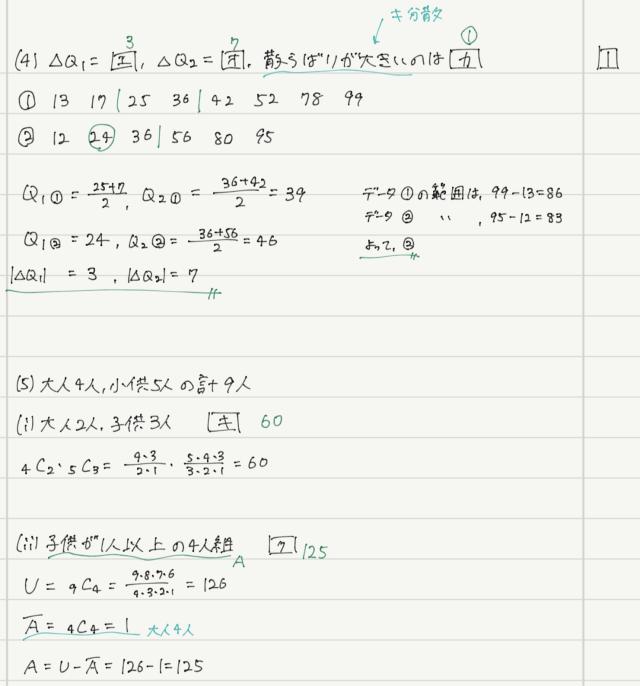 キ分散
3 7 ①
(4) △Q₁ = エ, △Q₂ = オ, 散らばりが大きいのは カ
1
① 13 17 | 25 36 | 42 52 78 99
② 12 24 36 | 56 80 95
Q₁① = 25+7/2, Q₂① = 36+42/2 = 39
データ①の範囲は, 99-13=86
Q₁② = 24, Q₂② = 36+56/2 = 46
データ② 〃, 95-12=83
よって, ②
|△Q₁| = 3, |△Q₂| = 7
(5) 大人4人, 小供5人の計9人
(i) 大人2人, 子供3人 キ 60
₄C₂・₅C₃ = 4・3/2・1・5・4・3/3・2・1 = 60
(ii) 子供が1人以上の4人組 ク 125
A
U = ₉C₄ = 9・8・7・6/4・3・2・1 = 126
A̅ = ₄C₄ = 1 大人4人
A = U - A̅ = 126-1=125